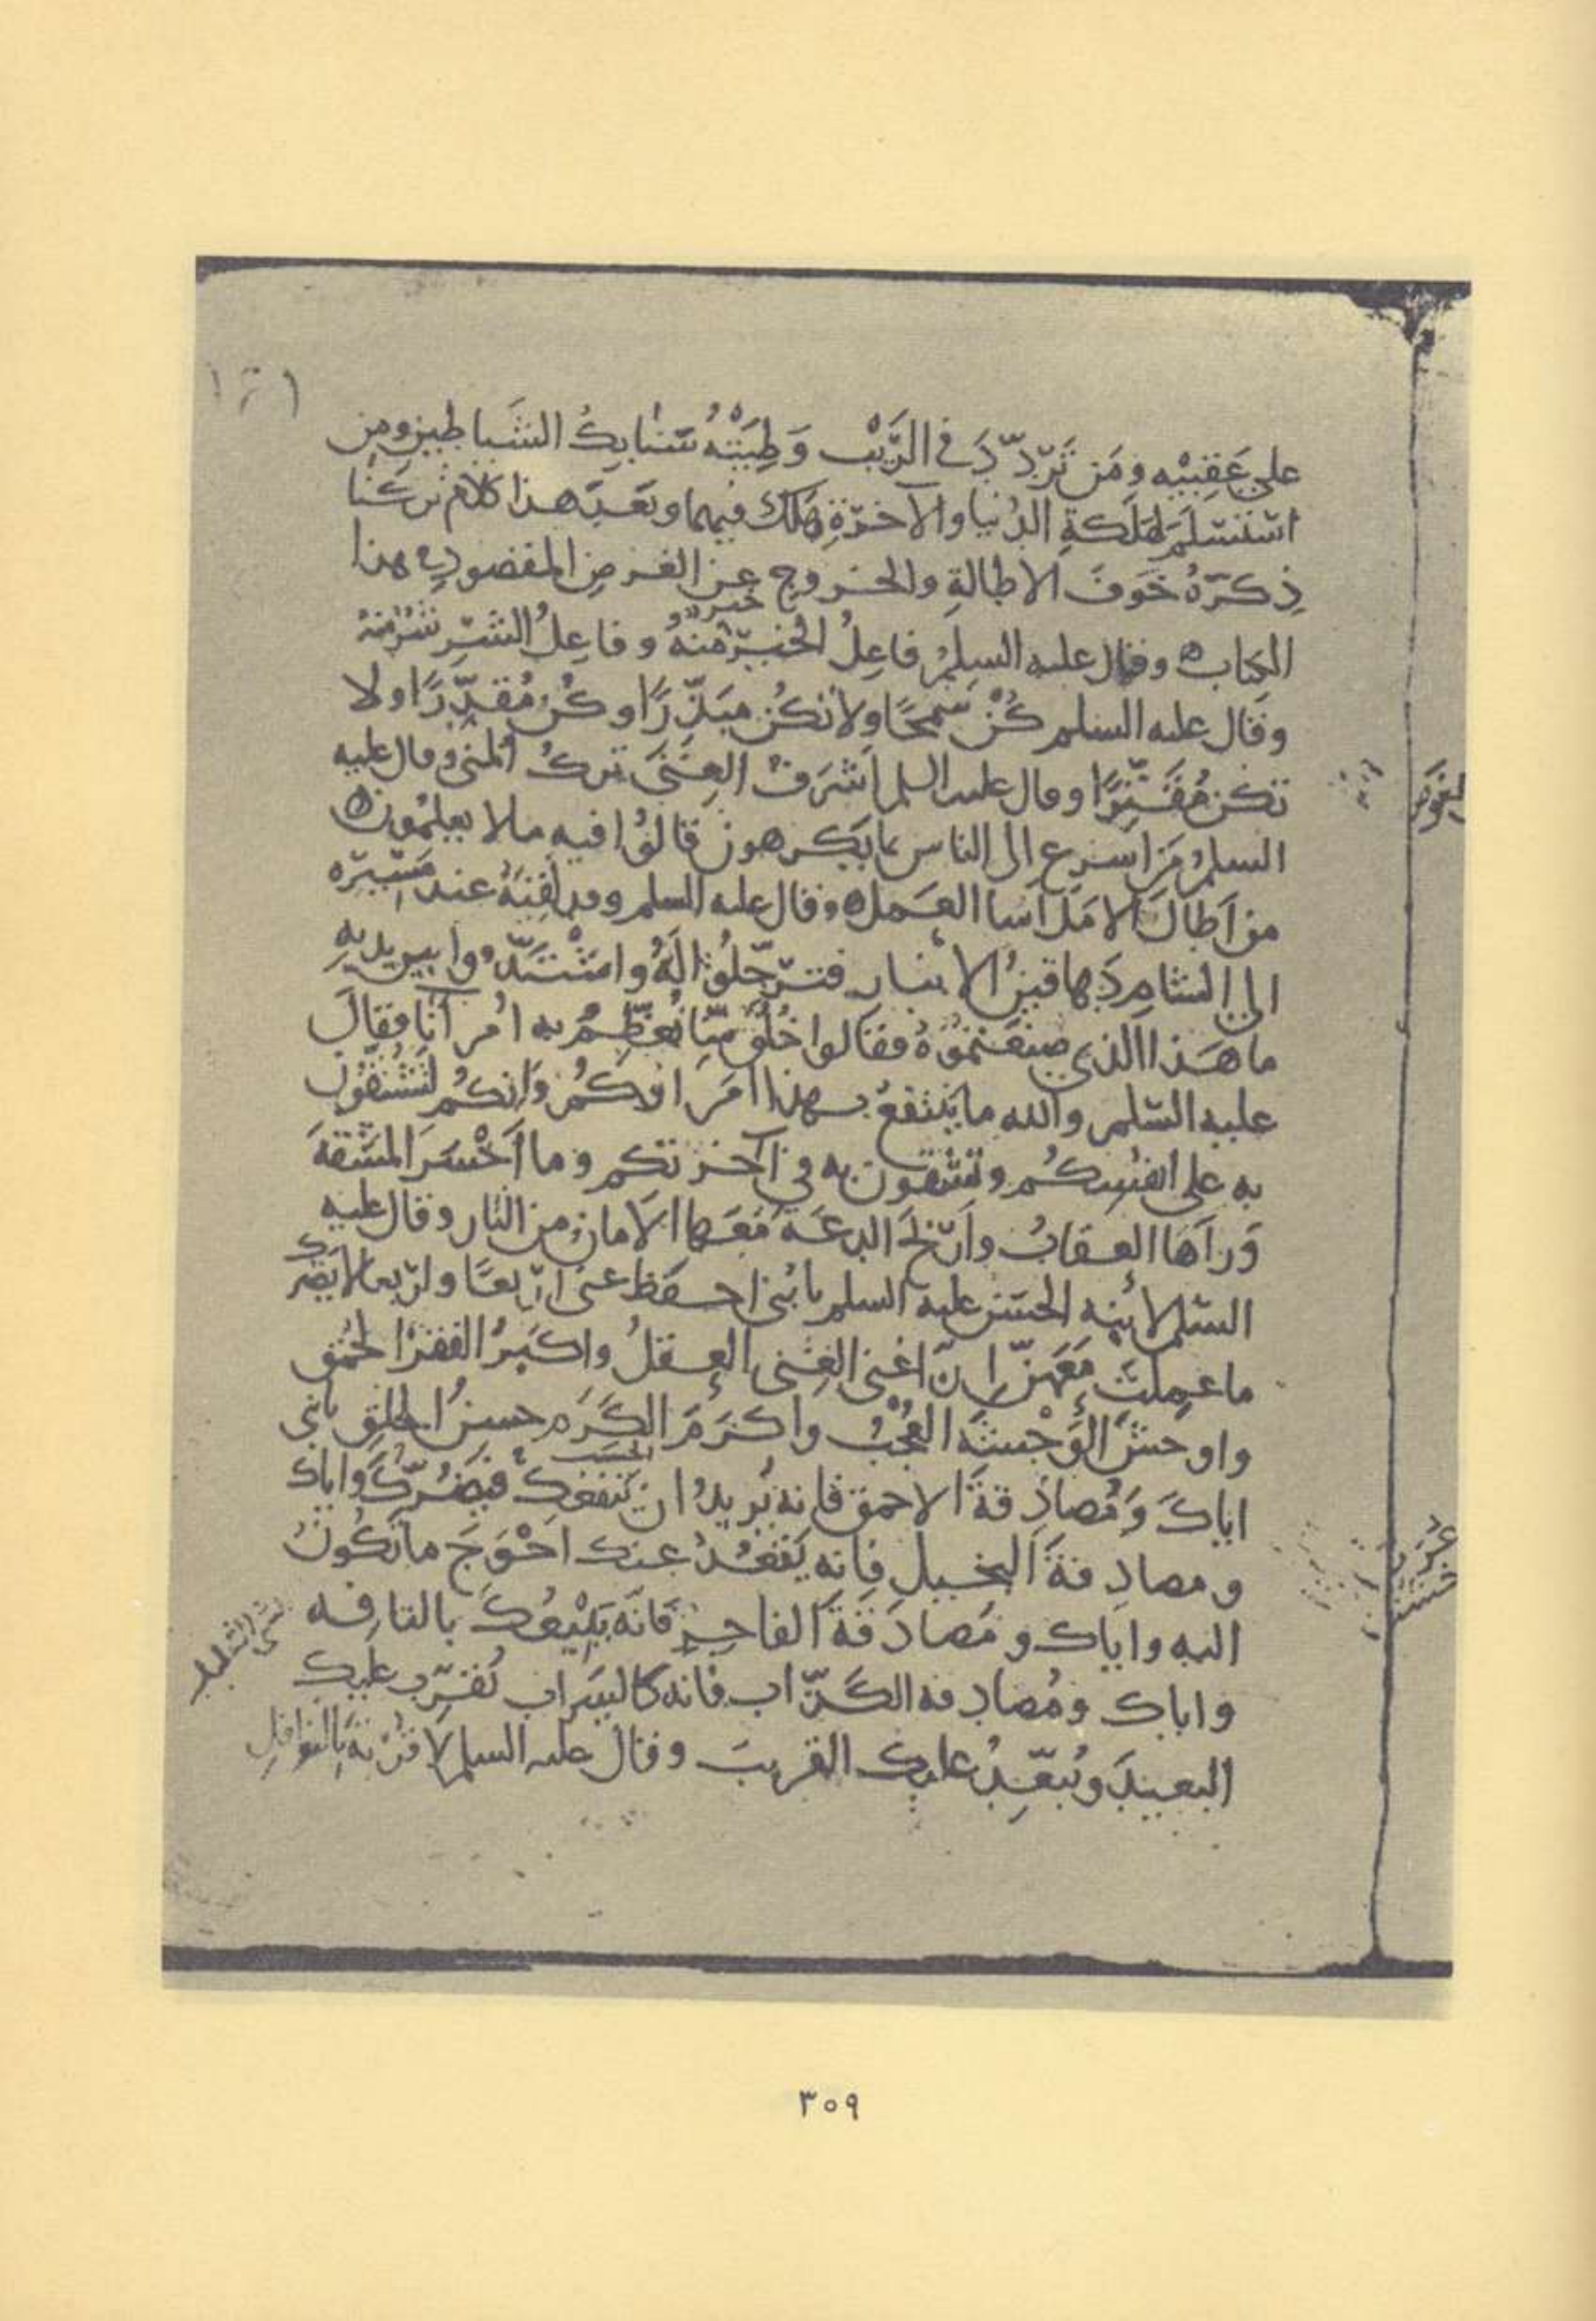 ١٣١
على عَقِبَيْه ومَن تَرَدَّدَ في الرَّيْب وَطِئَتْهُ سَنَابِكُ الشَيَاطِين ومن
اسْتَسْلَمَ لِهَلَكَةِ الدُنيا والآخرَةِ هَلَكَ فيهما وبَعدَ هذا كلامٌ تركنا
ذِكرَهُ خَوفَ الاطالةِ والخروج عن الغرض المقصود في هذا
الكتاب ه وقال عليه السلم فاعِلُ الخيرِ خيرٌ منهُ وفاعِلُ الشَرِّ شرٌ منهُ
وقال عليه السلم كُنْ سَمِحًا ولا تكُن مبَذِّرًا وكُن مُقدِّرًا ولا
تكن مُقَتِّرًا وقال عليه السلم اَشرَفُ الغِنَى تركُ المنى وقال عليه
السلم مَن اسرع الى الناس بما يَكرهون قالوُا فيه ما لا يعلمُون ه
من اَطالَ الامَلَ اَسا العَمل ه وقال عليه السلم وقد لقيَهُ عند مَسِيرِه
الى الشام دَهاقينُ الانبار فترجَّلوُا لَهُ واشْتَدّوا بين يديهِ
ما هَذا الذي صنعتموُهُ فقالوا خُلُقٌ مِنّا نُعَظِّمُ به اُمرآنَا فقال
عليه السّلم والله ما يَنتفعُ بهذا اُمَرَاؤكُم وَانكُم لتَشُقّوُن
به على انفُسِكُم وتَشقَون به في آخرتكم وما اَخْسَرَ المَشَقةَ
وَرآهَا العقابُ واَرْبَحَ الدعَةَ مَعَهَا الاَمانُ من النار وقال عليه
السّلم لابنه الحسَن عليه السلم يا بُنيَّ احفَظ عنى اربَعًا واربعا لا يَضرك
ما عَمِلتَ مَعَهنّ اِنّ اغنى الغِنى العقلُ واكبَرُ الفقرِ الحُمْق
واوحَشَ الوَحْشَةِ العُجْبُ واكرَمَ الكرَمِ الحسَب حسنُ الخلقِ يا بُنى
اياكَ وَمُصادَقةَ الاحمق فانه يُريدُ ان يَنفعَكَ فيَضُرّكَ واياك
ومصادقةَ البخيل فانه يَقعُدُ عنك احْوَجَ ما تكُونُ
اليه واياك ومُصادَقَةَ الفاجِر فانَه يَبيْعُكَ بالتافه
واياك ومُصادقة الكَذّاب فانه كالسَراب يُقرّب عليك
البعيدَ ويُبعِّدُ عليك القريبَ وقال عليه السلم لا قُرْبةَ بالنوافل
٣٠٩